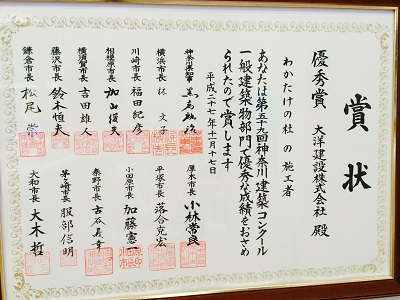 賞状
優秀賞 大洋建設株式会社 殿
わかたけの杜の施工者
あなたは第五十九回神奈川建築コンクール
一般建築物部門で優秀な成績をおさめ
られたので賞します
平成二十七年十一月十七日
神奈川県知事 黒岩祐治
横浜市長 林文子
川崎市長 福田紀彦
相模原市長 加山俊夫
横須賀市長 吉田雄人
藤沢市長 鈴木恒夫
鎌倉市長 松尾崇
厚木市長 小林常良
平塚市長 落合克宏
小田原市長 加藤憲一
秦野市長 古谷義幸
茅ヶ崎市長 服部信明
大和市長 大木哲